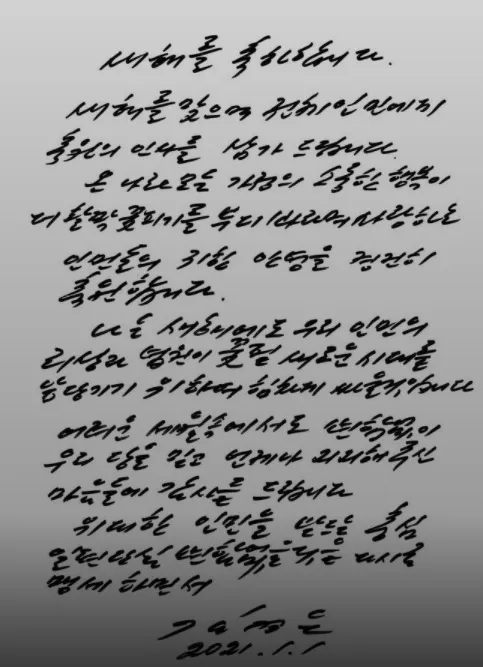 새해를 축하합니다.
새해를 맞으며 전체 인민에게
축원의 인사를 삼가 드립니다.
온 나라 모든 가정의 소중한 행복이
더 활짝 꽃피기를 부디 바라며 사랑하는
인민들의 귀한 안녕을 경건히
축원합니다.
나는 새해에도 우리 인민의
리상과 념원이 꽃필 새로운 시대를
앞당기기 위하여 힘차게 싸울것입니다
어려운 세월속에서도 변함없이
우리 당을 믿고 언제나 지지해주신
마음들에 감사를 드립니다
위대한 인민을 받드는 충심
일편단심 변함없을 다시금
맹세하면서
김정은
2021.1.1